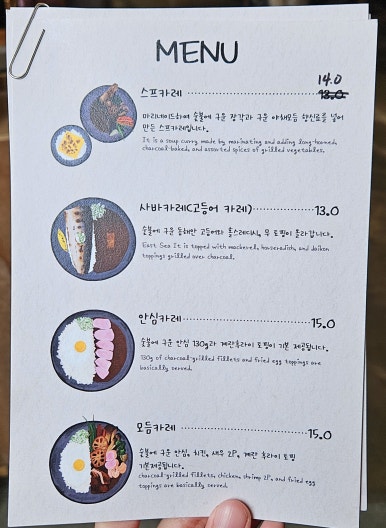 MENU
14.0
스프카레 13.0
마리네이드하여 숯불에 구운 장각과 구운 야채모듬 향신료를 넣어
만든 스프카레입니다.
It is a soup curry made by marinating and adding long-horned,
charcoal-baked, and assorted spices of grilled vegetables.
사바카레(고등어 카레) 13.0
숯불에 구운 동해안 고등어와 홀스래디시, 무 토핑이 올라갑니다.
East Sea It is topped with mackerel, horseradish, and daikon
toppings grilled over charcoal.
안심카레 15.0
숯불에 구운 안심 130g과 계란후라이 토핑이 기본 제공됩니다.
130g of charcoal-grilled fillets and fried egg toppings are
basically served.
모듬카레 15.0
숯불에 구운 안심, 치킨, 새우 2P, 계란 후라이 토핑
기본제공됩니다.
charcoal-grilled fillets, chicken, shrimp 2P, and fried egg
toppings are basically served.